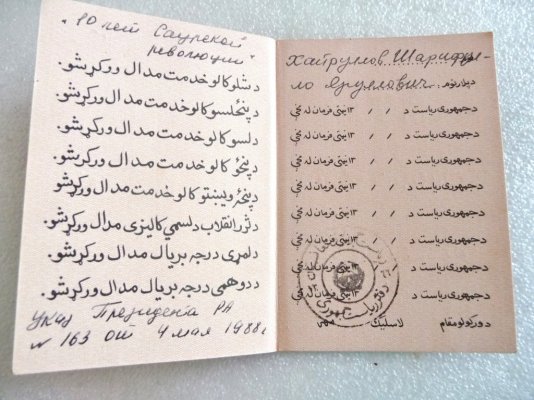 "10 лет Саурской
революции"
د شلو کالو خدمت مدال ورکړ شو.
د پنځلسو کالو خدمت مدال ورکړ شو.
د لسو کالو خدمت مدال ورکړ شو.
د پنځو کالو خدمت مدال ورکړ شو.
د پنځه ویشتو کالو خدمت مدال ورکړ شو.
د ثور انقلاب د لسمې کالیزې مدال ورکړ شو.
د لمړی درجه بریال مدال ورکړ شو.
د دوهمې درجه بریال مدال ورکړ شو.
Указ Президента РА
№ 163 от 4 мая 1988г
د جمهوری ریاست د / / ۱۳ نېټې فرمان له مخې
د جمهوری ریاست د / / ۱۳ نېټې فرمان له مخې
د جمهوری ریاست د / / ۱۳ نېټې فرمان له مخې
د جمهوری ریاست د / / ۱۳ نېټې فرمان له مخې
د جمهوری ریاست د / / ۱۳ نېټې فرمان له مخې
د جمهوری ریاست د / / ۱۳ نېټې فرمان له مخې
د جمهوری ریاست د ۱۳ نېټې فرمان له مخې
د جمهوری ریاست د ۱۳ نېټې فرمان له مخې
د ورکولو مقام لاسلیک